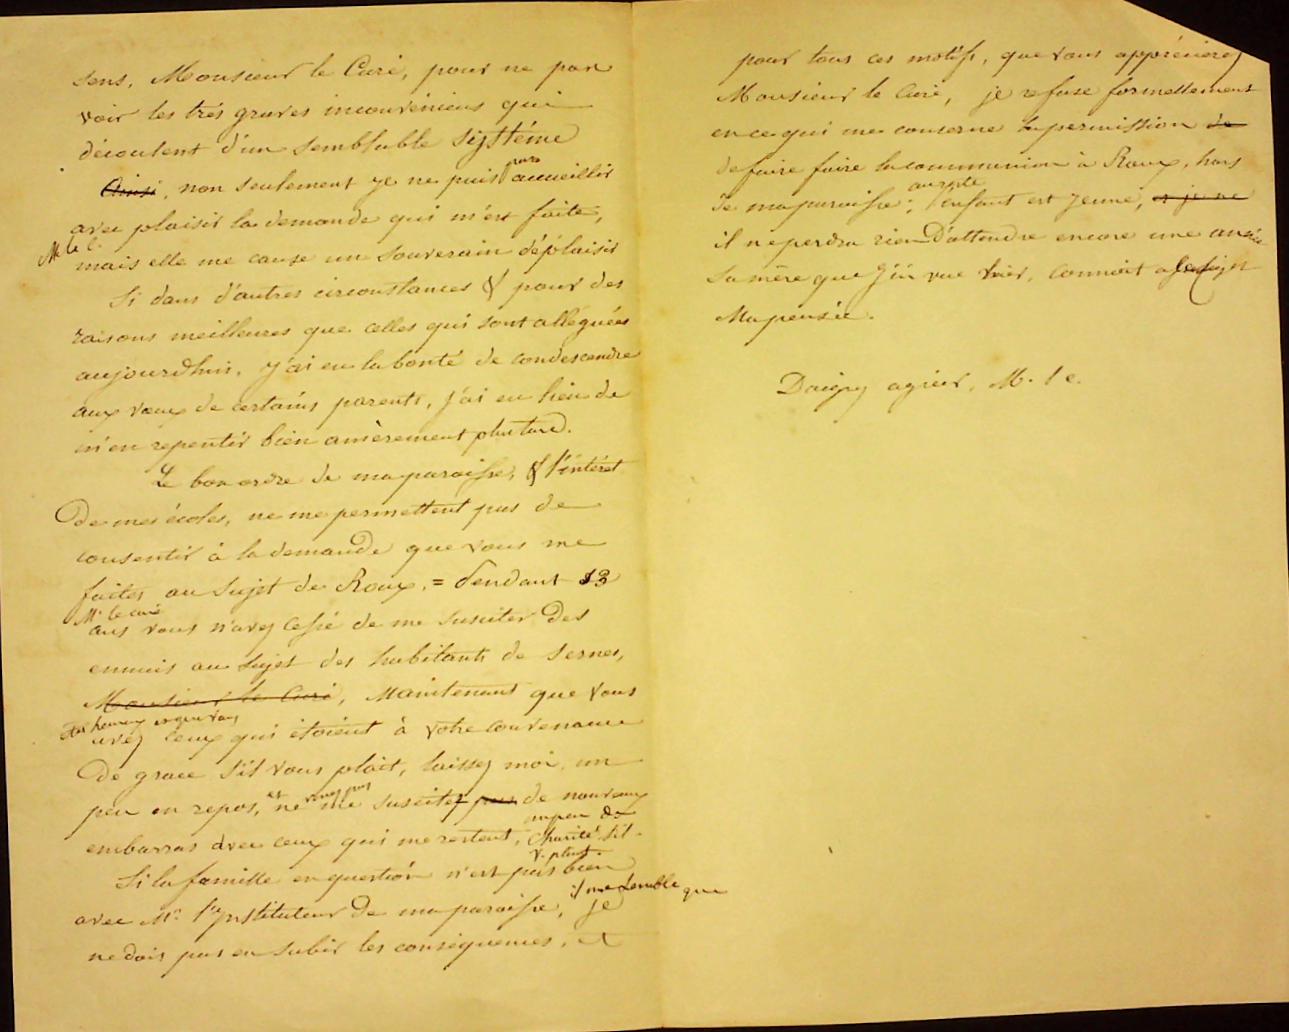 sens, Monsieur le Curé, pour ne pas
voir les très graves inconvéniens qui
découlent d'un semblable système
Ainsi, non seulement je ne puis pas accueillir
avec plaisir la demande qui m'est faite,
M. le C.
mais elle me cause un souverain déplaisir
Si dans d'autres circonstances & pour des
raisons meilleures que celles qui sont alléguées
aujourdhui, j'ai eu la bonté de condescendre
aux vœux de certains parents, j'ai eu lieu de
m'en repentir bien amèrement plutard.
Le bon ordre de ma paroisse, & l'intéret
de mes écoles, ne me permettent pas de
consentir à la demande que vous me
faites au sujet de Roux. = Pendant 13
Mr le curé
ans vous n'avez cessé de me susciter des
ennuis au sujet des habitants de Sernes,
Monsieur le Curé, Maintenant que vous
avez ceux qui étoient à votre convenance
de grace s'il vous plait, laissez moi un
peu en repos, et ne venez pas me susciter pas de nouveaux
embarras avec ceux qui me restent, un peu de charité s'il
v. plait.
Si la famille en question n'est pas bien
avec Mr l'Instituteur de ma paroisse, il me semble que je
ne dois pas en subir les conséquences, et
pour tous ces motifs, que vous apprécierez
Monsieur le Curé, je refuse formellement
en ce qui me concerne la permission de
de faire faire la communion à Roux, hors
de ma paroisse; au reste l'enfant est jeune, et je ne
il ne perdra rien d'attendre encore une année
sa mère que j'ai vue hier, connoit
Ma pensée.
Daignez agréer, M. le c.